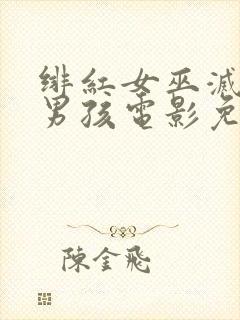 绯紅女巫滅
男孩電影免
陳金飛